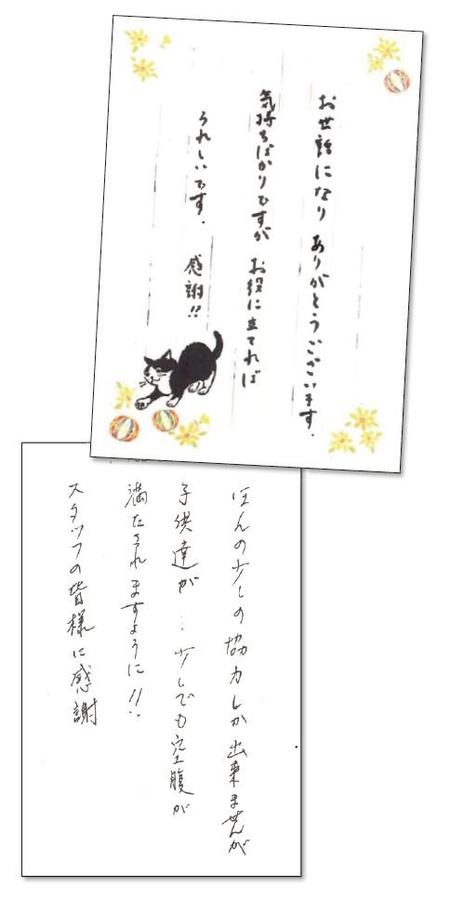 お世話になり ありがとうございます.
気持ちばかりですが お役に立てれば
うれしいです. 感謝!!
ほんの少しの協力しか出来ませんが
子供達が…少しでも空腹が
満たされますように!!
スタッフの皆様に感謝